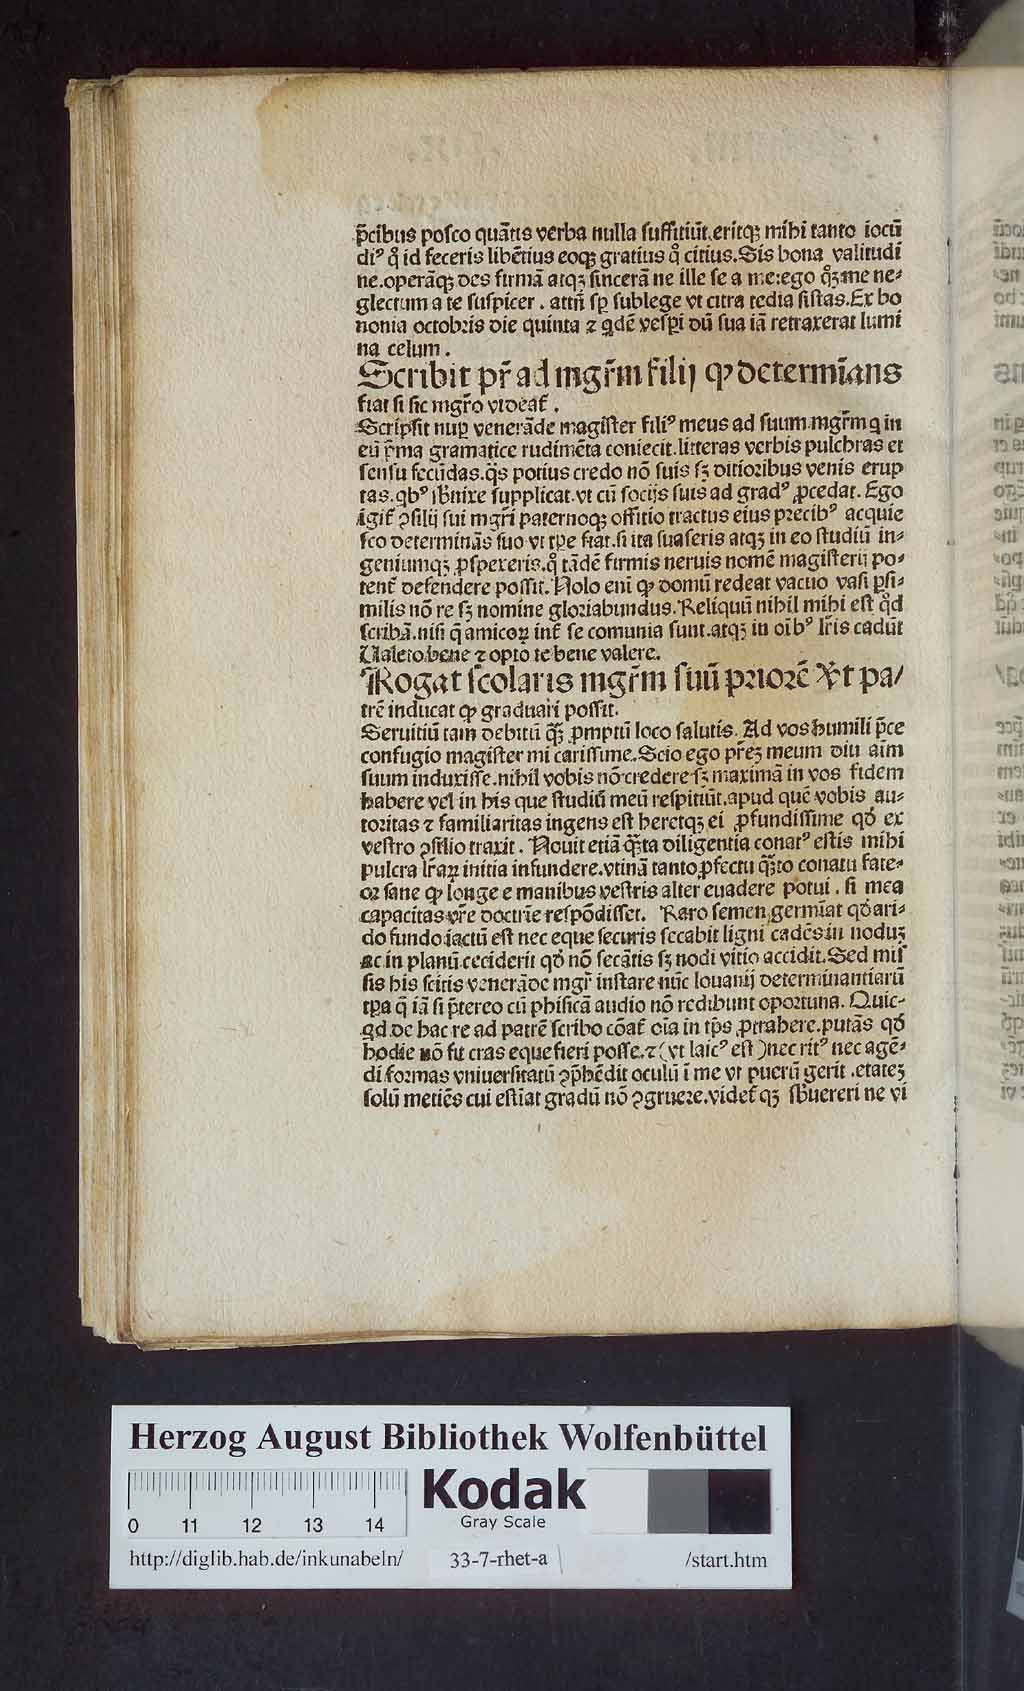 p̄cibus posco quātis verba nulla suffitiūt.eritqꝫ mihi tanto iocū
diꝰ qͦ id feceris libētius eoqꝫ gratius qͦ citius.Sis bona valitudi
ne.operāqꝫ des firmā atqꝫ sincerā ne ille se a me:ego qͦꝫ me ne⸗
glectum a te suspicer . attñ sꝑ sublege vt citra tedia sistas.Ex bo
nonia octobris die quinta ⁊ qͥdē vesꝑi dū sua iā retraxerat lumi
na celum .
Scribit pr̄ ad mgr̄m filij ꝙ determīans
fiat si sic mgr̄o videat̄ .
Scripsit nuꝑ venerāde magister filiꝰ meus ad suum mgr̄m q in
eū p̄ma gramatice rudimēta coniecit.litteras verbis pulchras et
sensu fecūdas.qͣs potius credo nō suis sꝫ ditioribus venis erup
tas.qbꝰ sb̄nixe supplicat.vt cū socijs suis ad gradꝰ ꝓcedat. Ego
igit̄ ꝯsilij sui mgr̄i paternoqꝫ offitio tractus eius precibꝰ acquie
sco determinās suo vt tꝑe fiat.si ita suaseris atqꝫ in eo studiū in⸗
geniumqꝫ ꝓspexeris.qͦ tādē firmis neruis nomē magisterij po⸗
tent̄ defendere possit. Nolo eni ꝙ domū redeat vacuo vasi ꝑsi⸗
milis nō re sꝫ nomine gloriabundus.Reliquū nihil mihi est qͦd
scribā.nisi q̄ amicoꝝ int̄ se comunia sunt.atqꝫ in oībꝰ lr̄is cadūt
Valeto bene ⁊ opto te bene valere.
Rogat scolaris mgr̄m suū priorē vt pa/
trē inducat ꝙ graduari possit.
Seruitiū tam debitū qͣꝫ ꝓmptū loco salutis. Ad vos humili p̄ce
confugio magister mi carissime.Scio ego pr̄eꝫ meum diu aīm
suum induxisse.nihil vobis nō credere sꝫ maximā in vos fidem
habere vel in his que studiū meū respitiūt.apud quē vobis au⸗
toritas ⁊ familiaritas ingens est heretqꝫ ei ꝓfundissime qd̄ ex
vestro ꝯsilio traxit . Nouit etiā qͣꝫta diligentia conatꝰ estis mihi
pulcra lr̄aꝝ initia infundere.vtinā tanto ꝓfectu qͣꝫto conatu fate⸗
or sane ꝙ longe e manibus vestris alter euadere potui . si mea
capacitas vr̄e doctrīe respōdisset. Raro semen germīat qd̄ ari⸗
do fundo iactū est nec eque securis secabit ligni cadēs in noduꝫ
ac in planū ceciderit qd̄ nō secātis sꝫ nodi vitio accidit.Sed mis
sis his scitis venerāde mgr̄ instare nūc louanij determinantiarū
tꝑa q̄ iā si p̄tereo cū phisicā audio nō redibunt oportuna. Quic⸗
qd de hac re ad patrē scribo cōat̄ oīa in tp̄s ꝓtrahere.putās qd̄
hodie nō fit cras eque fieri posse.⁊ (vt laicꝰ est )nec ritꝰ nec agē⸗
di formas vniuersitatū ꝯp̄hēdit oculū ī me vt puerū gerit .etateꝫ
solū metiēs cui estīat gradū nō ꝯgruere.videt̄qꝫ sb̄uereri ne vi
Herzog August Bibliothek Wolfenbüttel
Kodak
Gray Scale
0 11 12 13 14
http://diglib.hab.de/inkunabeln/ 33-7-rhet-a /start.htm